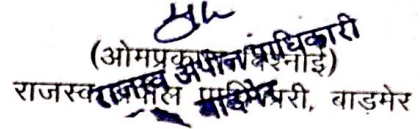 (ओमप्रकाश बिश्नोई)
राजस्व अपील प्राधिकारी
राजस्व अपील प्राधिकारी, बाड़मेर
बाड़मेर